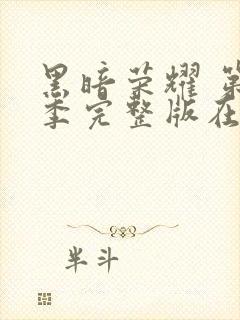 黑暗荣耀 第
季完整版在
半斗